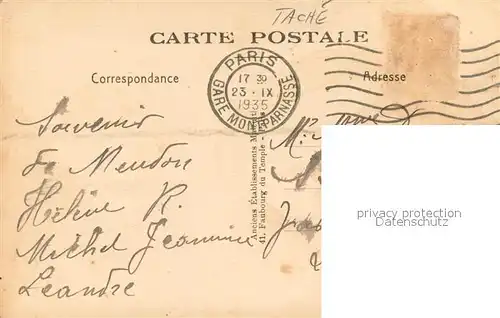 TACHÉ
CARTE POSTALE
PARIS
17 30
23 · IX
1935
GARE MONTPARNASSE
Correspondance
Adresse
Souvenir
de Meudon
Hélène R.
Michel Jeannine
Léandre
Anciens Établissements
41, Faubourg du Temple
privacy protection
Datenschutz